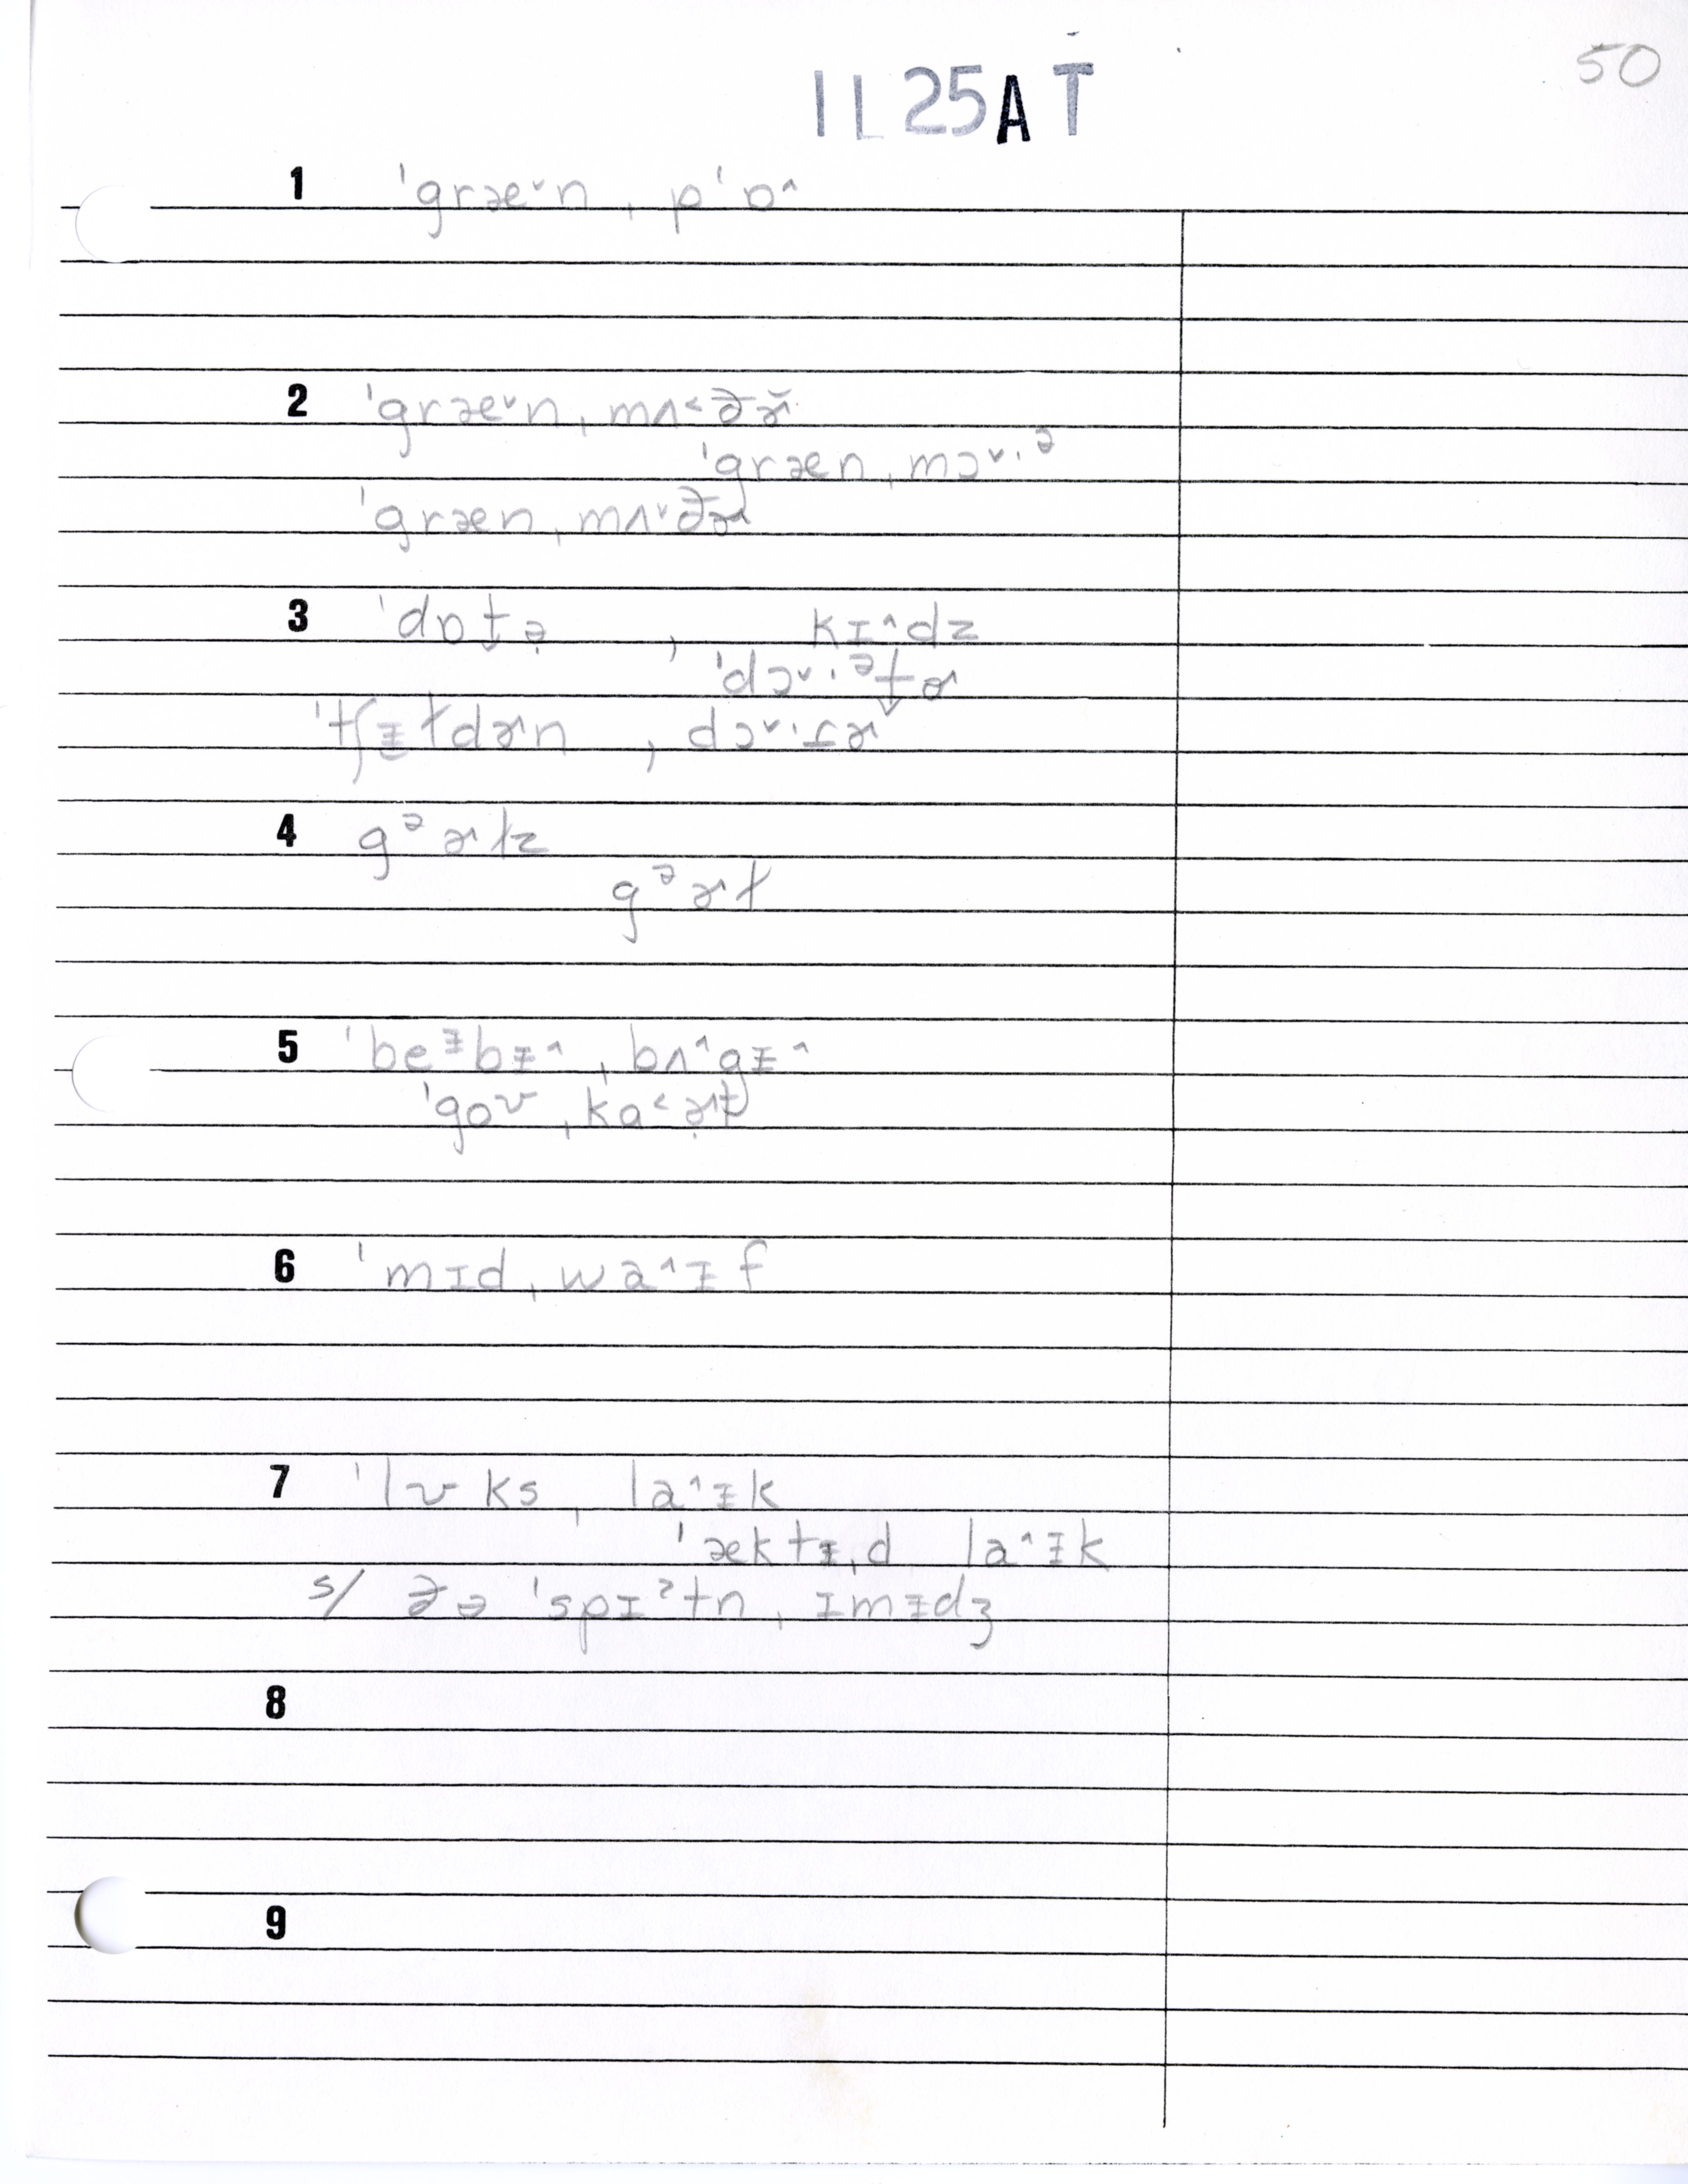 50
IL25AT
1 ˈgræ˅n ˌpˈɒ˄
2 ˈgræ˅n ˌmʌ˂ðɚ̆
ˈgræn ˌmɔ˅·ᵊ
ˈgræn ˌmʌ˅ðɚ
3 ˈdɒtə̣ , kɪ˄dz
ˈdɔ˅·ᵊtɚ
ˈtʃᵻɫdɚn , dɔ˅·t̬ɚ
4 gᵊɚɫz
gᵊɚɫ
5 ˈbeᵻbᵻ˄ ˌbʌ˄gᵻ˄
ˈgoʊ ˌkɑ˂ɚ̣t
6 ˈmɪd ˌwa˄ᵻf
7 ˈlʊks ˌla˄ᵻk
ˈæktᵻˌd la˄ᵻk
s/ ðə ˈspɪˀtn ˌɪmᵻdʒ
8
9